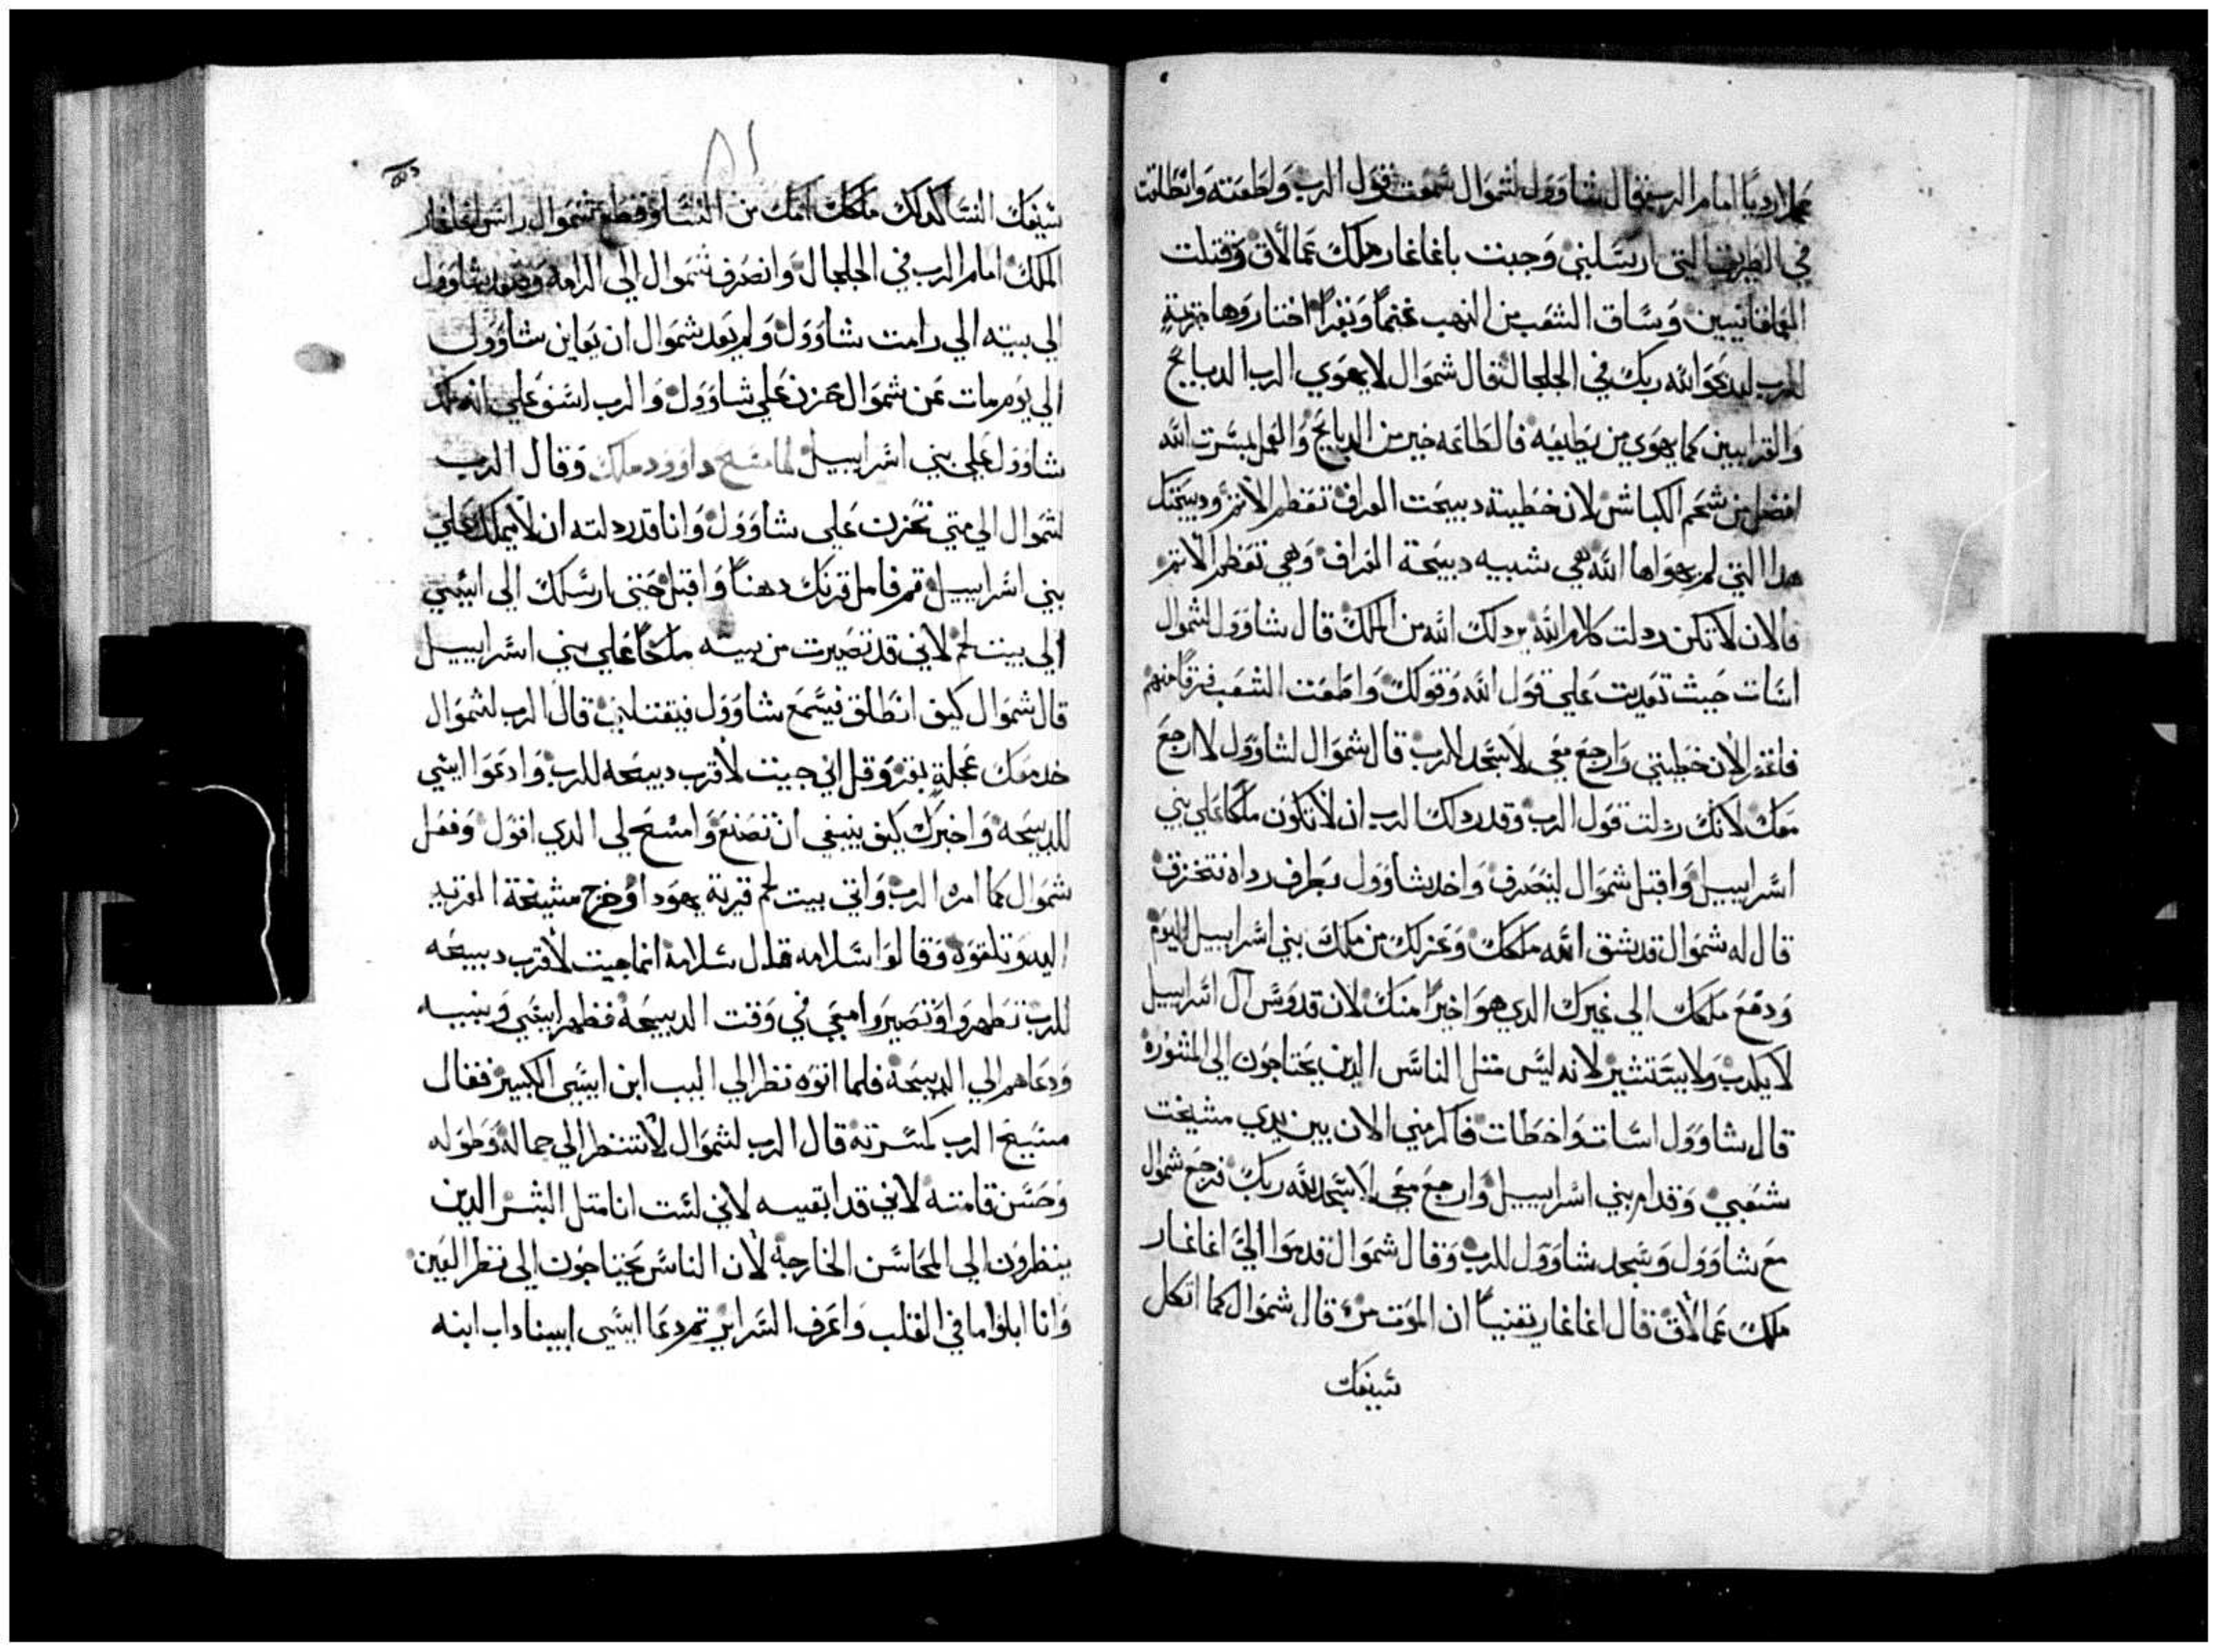 عملا رديا امام الرب فقال شاوول لشموال سمعت قول الرب ولطعته وانطلقت
في الطريق التي ارسلني وجبت باغاغار ملك عمالاق وقتلت
العمالقانيين وساق الشعب من النهب غنما وبقرا اختاروها
للرب ليدعوا الله ربك في الجلجال فقال شموال لا يهوي الرب الدبايح
والقرابيين كما يهوي من يطيعه فالطاعه خير من الدبايح والعمل بمسرت الله
افضل من شحم الكباش لان خطيية دبيحت العراف تعظم الاتم ودبيحتك
هدا التي لم يهواها الله هي شبيه دبيحة العراف وهي تعظم الاتم
فالان لانك ردلت كلام الله يردلك الله من الملك قال شاوول لشموال
اسات حيث تعديت علي قول الله وقولك واطعت الشعب فرقا منهم
فاغفر الان خطيتي وارجع معي لاسجد للرب قال شموال لشاوول لا ارجع
معك لانك ردلت قول الرب وقد ردلك الرب ان لا تكون ملكا علي بني
اسراييل واقبل شموال لينصرف واخد شاوول بطرف رداه فتخزق
قال له شموال قد شق الله ملكك وعزلك من ملك بني اسراييل اليوم
ودفع ملكك الي غيرك الدي هو اخيرا منك لان قدوس آل اسراييل
لا يكدب ولا يستشير لانه ليس متل الناس الدين يحتاجون الي المشوره
قال شاوول اسات واخطات فاكرمني الان بين يدي مشيخت
شعبي وقدام بني اسراييل وارجع معي لاسجد لله ربك فرجع شموال
مع شاوول وسجد شاوول للرب وقال شموال قدموا الي اغاغار
ملك عمالاق قال اغاغار يقنيا ان الموت مر قال شموال كما اتكل
سيفك
٨١
سيفك النسا كدلك ملكك امك من النسا وقطع شموال راس اغاغار
الملك امام الرب في الجلجال وانصرف شموال الي الرامه وصعد شاوول
الي بيته الي رامت شاوول ولم يعد شموال ان يعاين شاوول
الي يوم مات عن شموال حزن علي شاوول والرب اسف علي انه ملك
شاوول علي بني اسراييل لما مسح داوود ملك وقال الرب
لشموال الي متي تحزن علي شاوول وانا قد ردلته ان لا يملك علي
بني اسراييل قم فامل قرنك دهنا واقبل حتي ارسلك الي ايسي
الي بيت لحم لاني قد تصيرت من بيته ملكا علي بني اسراييل
قال شموال كيف انطلق فيسمع شاوول فيقتلني قال الرب لشموال
خد معك عجلة بقر وقل اني جيت لاقرب دبيحه للرب وادعوا ايسي
للدبيحه واخبرك كيف ينبغي ان تصنع وامسح لي الدي اقول وفعل
شموال كما امره الرب واتي بيت لحم قرية يهودا وخرج مشيخة القريه
اليه وتلقوه وقالوا سلامه قال سلامة انما جيت لاقرب دبيحه
للرب تطهروا وتصيروا معي في وقت الدبيحة فطهر ايسي وبنيه
ودعاهم الي الدبيحة فلما اتوه نظر الي اليب ابن ايسي الكبير فقال
مسيح الرب كمسرته قال الرب لشموال لا تنظر الي جماله وطوله
وحسن قامته لاني قد ابقيسه لاني لست انا متل البشر الدين
ينظرون الي المحاسن الخارجة لان الناس يحتاجون الي نظر العين
وانا ابلوا ما في القلب واعرف السراير تم دعا ايسي ابيناداب ابنه